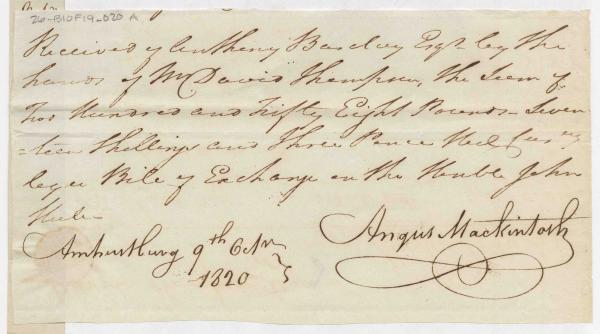 26-B10F19-020 A
Received of Anthony Barclay Esqr by the
hands of Mr David Thompson, the Sum of
Two Hundred and Fifty Eight Pounds - Seven
=teen Shillings and Three Pence
Bill of Exchange on the Honble John
Hale
Amherstburg 9th Octr
1820
Angus Mackintosh